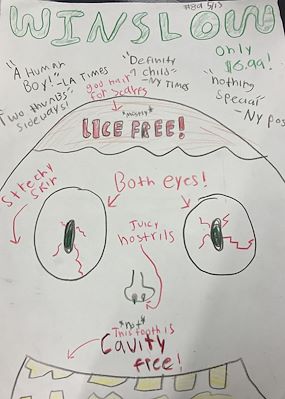 #8a 5/13
WINSLOW
only
$6.99!
"A Human
Boy!" ~LA Times
"Two thumbs
Sideways!
"Definitly
a child"
~Ny Times
"nothing
Special"
~Ny pos
good hair
for scalps
*mostly*
LICE FREE!
Stretchy
skin
Both eyes!
Juicy
nostrils
*not*
This tooth is
Cavity
free!